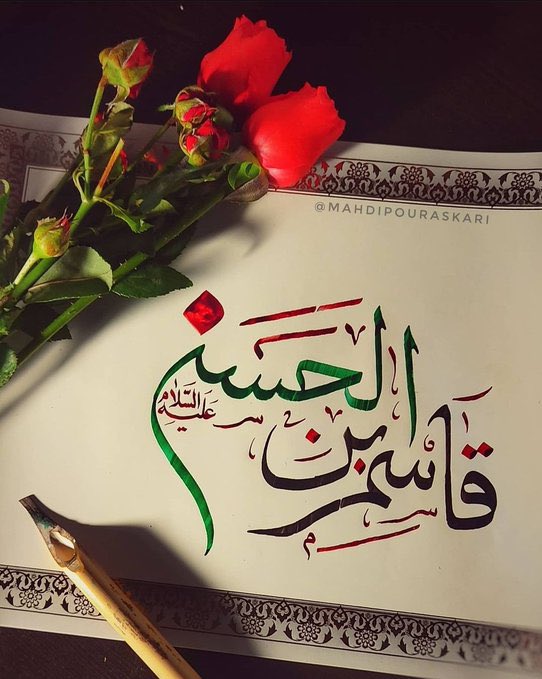 @MAHDIPOURASKARI
قاسم بن الحسن
علیه السلام